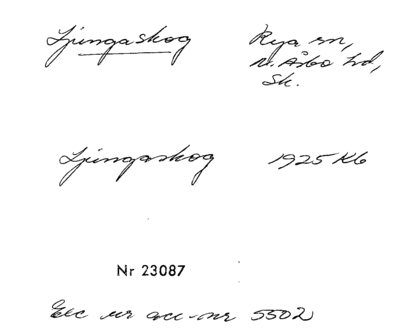 Ljungaskog Rya sn,
N. Åsbo hd,
Sk.
Ljungaskog 1925 Kb
Nr 23087
Exc ur acc-nr 5502